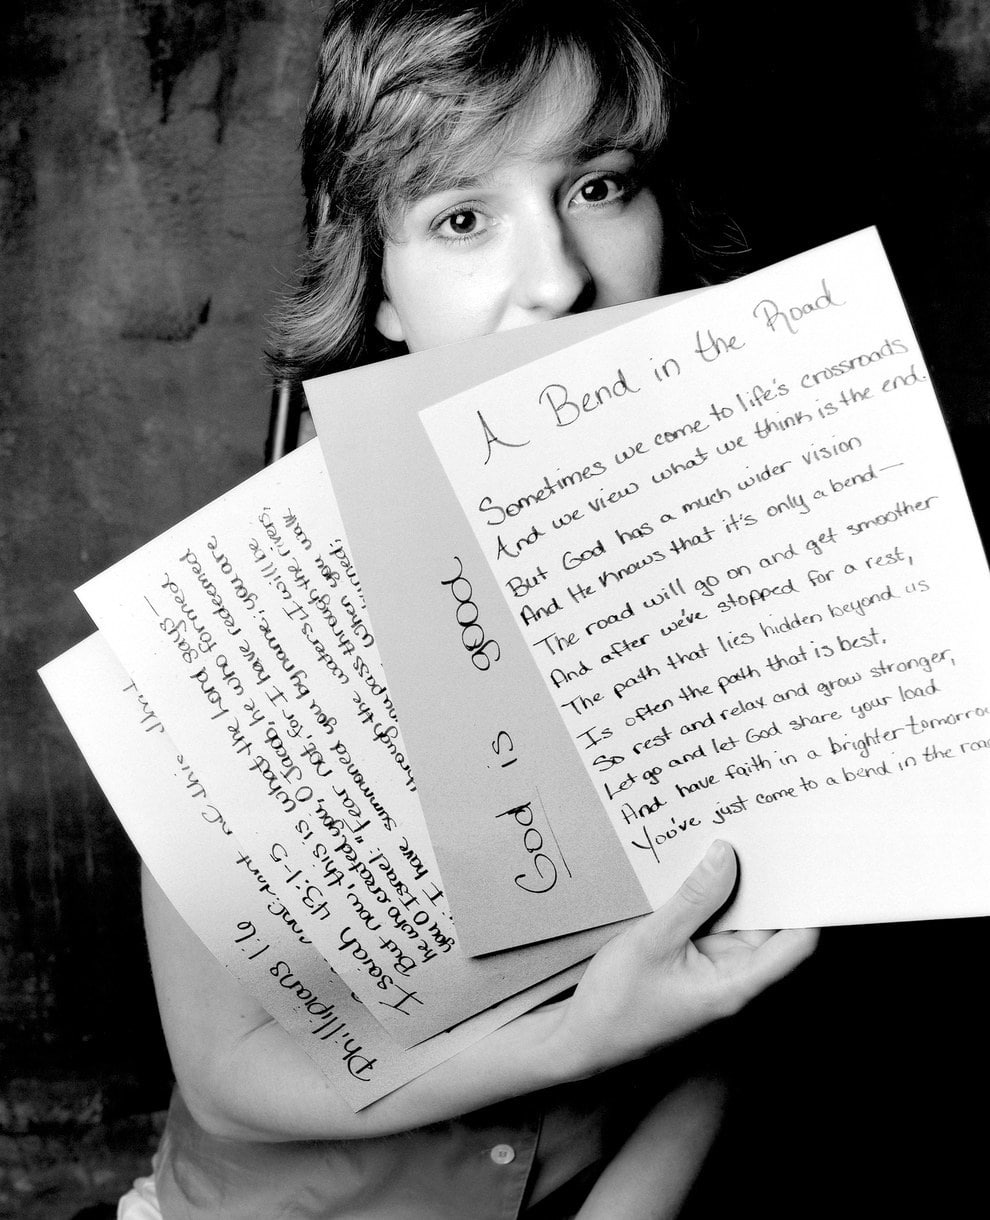 A Bend in the Road
Sometimes we come to life's crossroads
And we view what we think is the end.
But God has a much wider vision
And He knows that it's only a bend—
The road will go on and get smoother
And after we've stopped for a rest,
The path that lies hidden beyond us
Is often the path that is best.
So rest and relax and grow stronger,
Let go and let God share your load
And have faith in a brighter tomorrow
You've just come to a bend in the road
God is good
Isaiah 43:1-5
But now, this is what the Lord says—
he who created you, O Jacob, he who formed
you O Israel: "Fear not, for I have redeemed
I have summoned you by name; you are
through the waters, I will be
you pass through the rivers,
When you walk
Phillipians 1:6
this